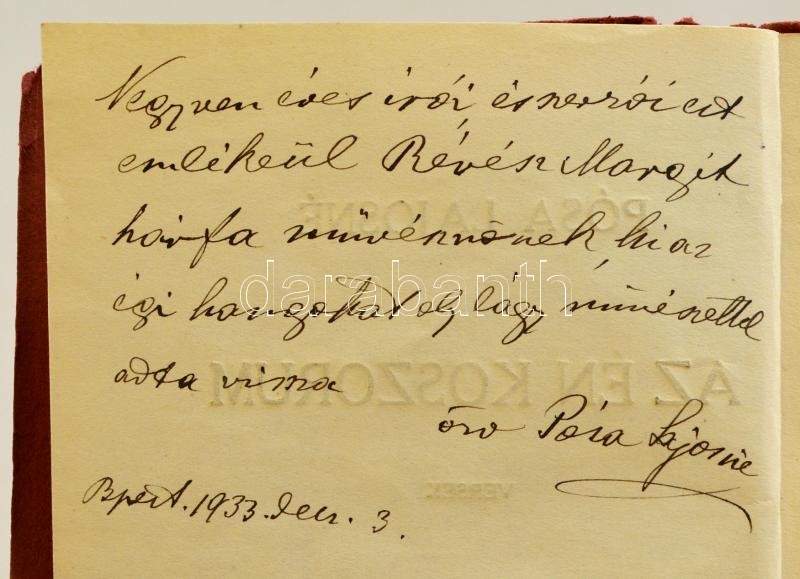 Negyven éves írói, és szerzői est
emlékeül Révész Margit
hárfa művésznőnek, ki az
égi hangokat oly lágy művészettel
adta vissza
özv Pósa Lajosné
Bpest. 1933. dec. 3.
PÓSA LAJOSNÉ
AZ ÉN KOSZORÚM
VERSEK
darabanth